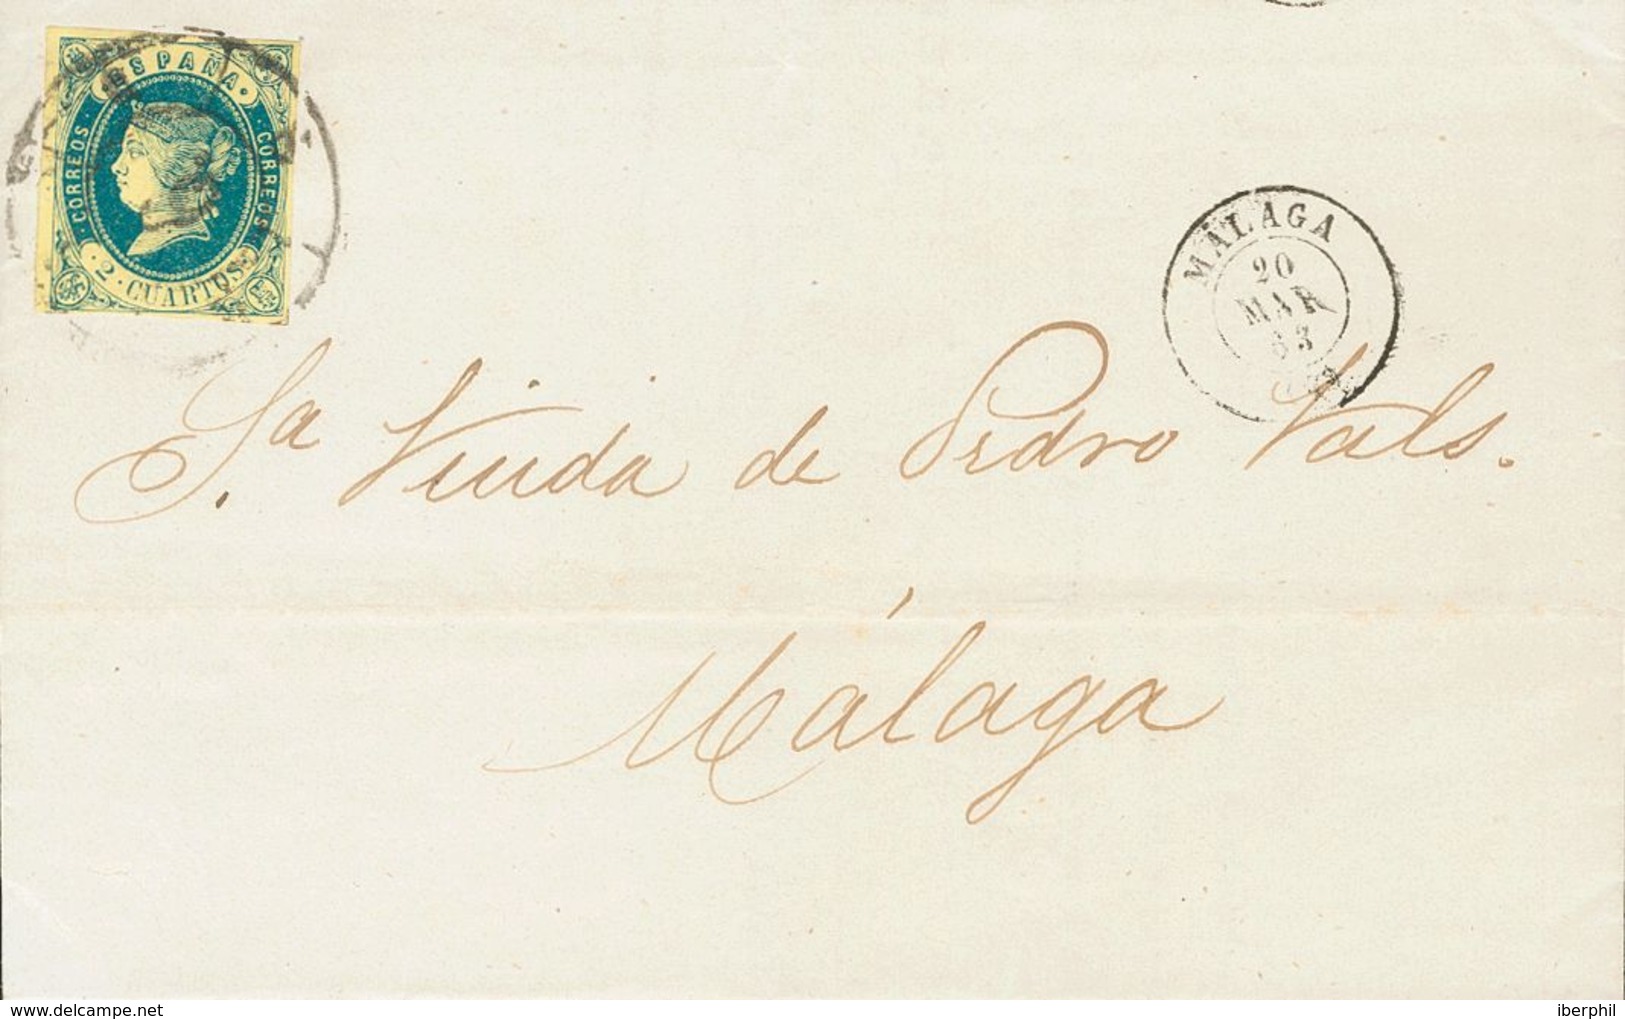 ESPAÑA
CORREOS
CORREOS
2 CUARTOS
MÁLAGA
20
MAR
63
Sa. Viuda de Pedro Vals.
Málaga
www.delcampe.net
iberphil